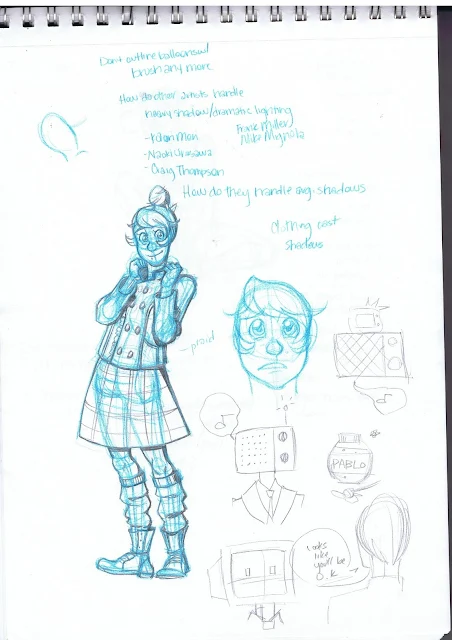 Don't outline balloons w/
brush any more
How do other artists handle
heavy shadow/dramatic lighting
Frank Miller
Mike Mignola
-Naoki Urasawa
-Craig Thompson
How do they handle avg. shadows
Clothing cast
Shadows
plaid
PABLO
Looks
like
you'll be
O.K